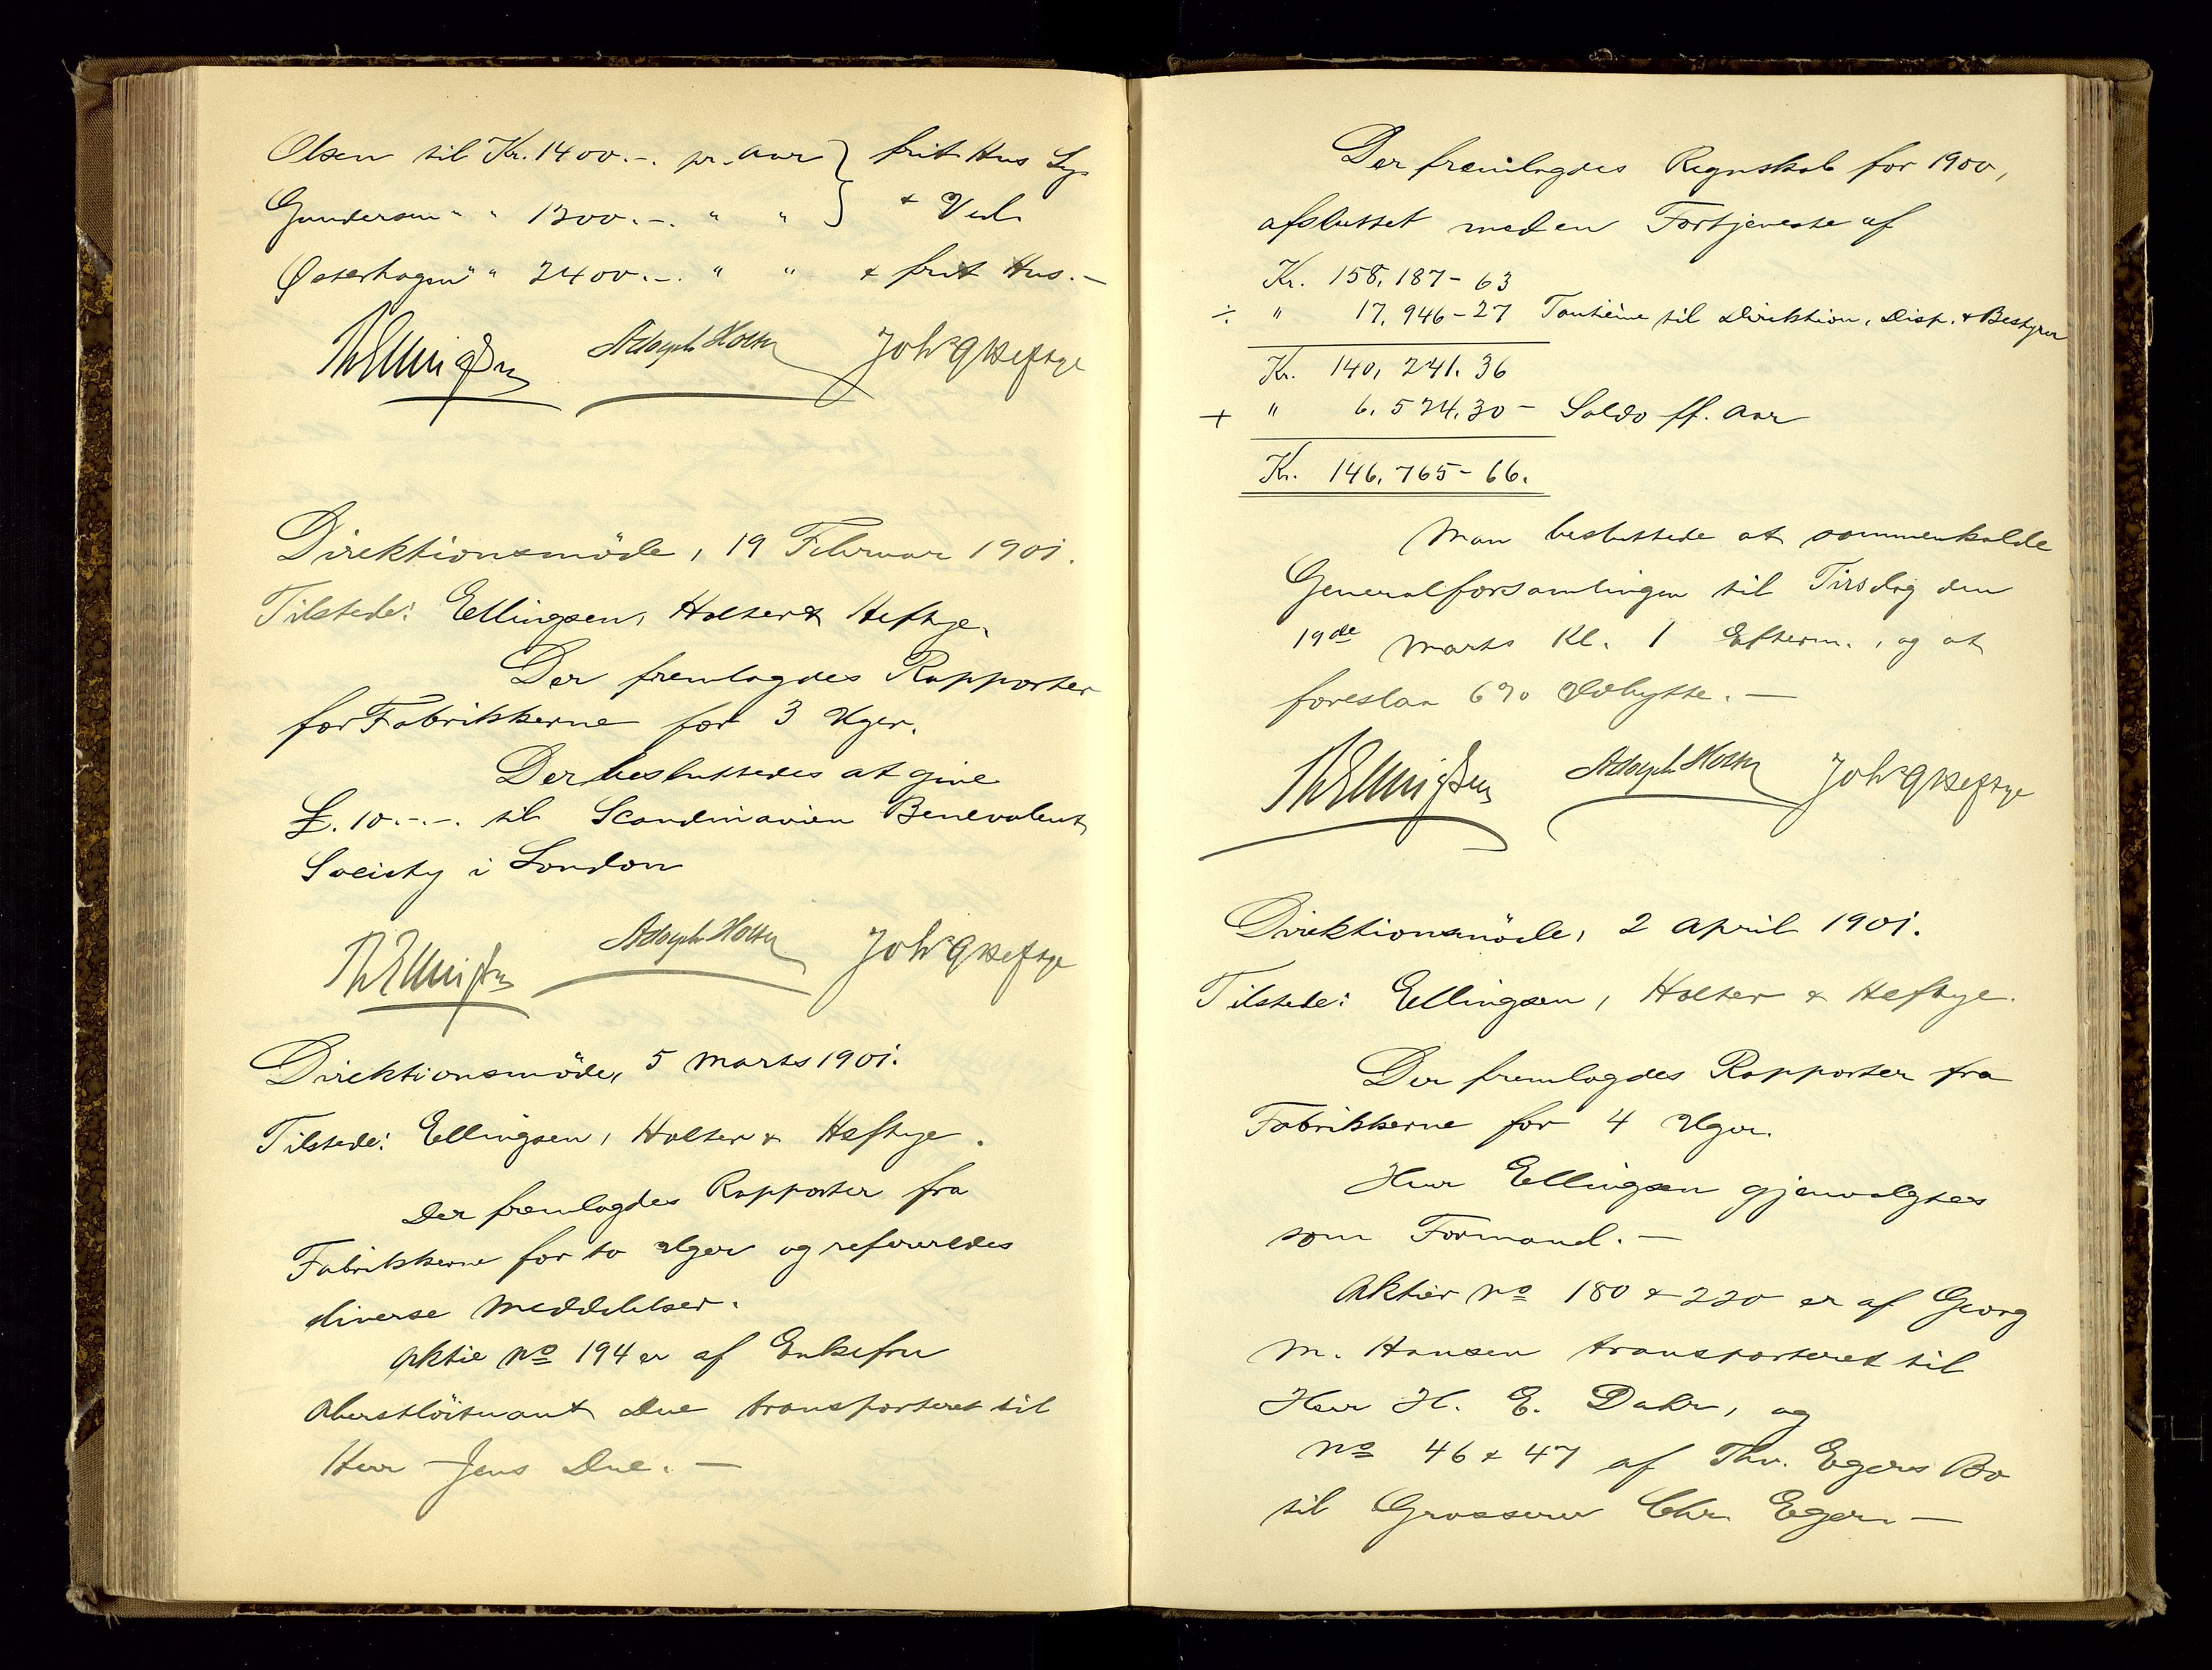 Olsen til Kr. 1400.-. pr. Aar } frit Hus Lys
Gundersen " " 1300.-. " " } + Ved
Østerhagen " " 2400.-. " " + frit Hus.-
ThEllingsen Adolph Holter Johs G Heftye
Direktionsmöde, 19 Februar 1901.
Tilstede: Ellingsen, Holter & Heftye.
Der fremlagdes Rapporter
for Fabrikkerne for 3 Uger.
Der besluttedes at give
£. 10.-.-. til Scandinavian Benevolent
Society i London
ThEllingsen Adolph Holter Johs G Heftye
Direktionsmöde, 5 Marts 1901.
Tilstede: Ellingsen, Holter & Heftye.
Der fremlagdes Rapporter fra
Fabrikkerne for to Uger og refereredes
diverse Meddelelser.
Aktie No 194 er af Enkefru
Oberstlöitnant Due transporteret til
Herr Jens Due. —
Der fremlagdes Regnskab for 1900,
afsluttet med en Fortjeneste af
Kr. 158,187-63
÷ " 17,946-27 Tantième til Direktion, Disp. & Bestyrer
Kr. 140,241.36
+ " 6.524.30 - Saldo ff. Aar
Kr. 146,765-66.
Man besluttede at sammenkalde
Generalforsamlingen til Tirsdag den
19de Marts Kl. 1 Efterm., og at
foreslaa 6% Udbytte. —
ThEllingsen Adolph Holter Johs G Heftye
Direktionsmöde, 2 April 1901.
Tilstede: Ellingsen, Holter & Heftye.
Der fremlagdes Rapporter fra
Fabrikkerne for 4 Uger.
Herr Ellingsen gjenvalgtes
som Formand. —
Aktier No 180 & 220 er af Georg
M. Hansen transporteret til
Herr H. E. Dahr, og
No 46 & 47 af Thv. Egers Bo
til Grosserer Chr. Eger. —